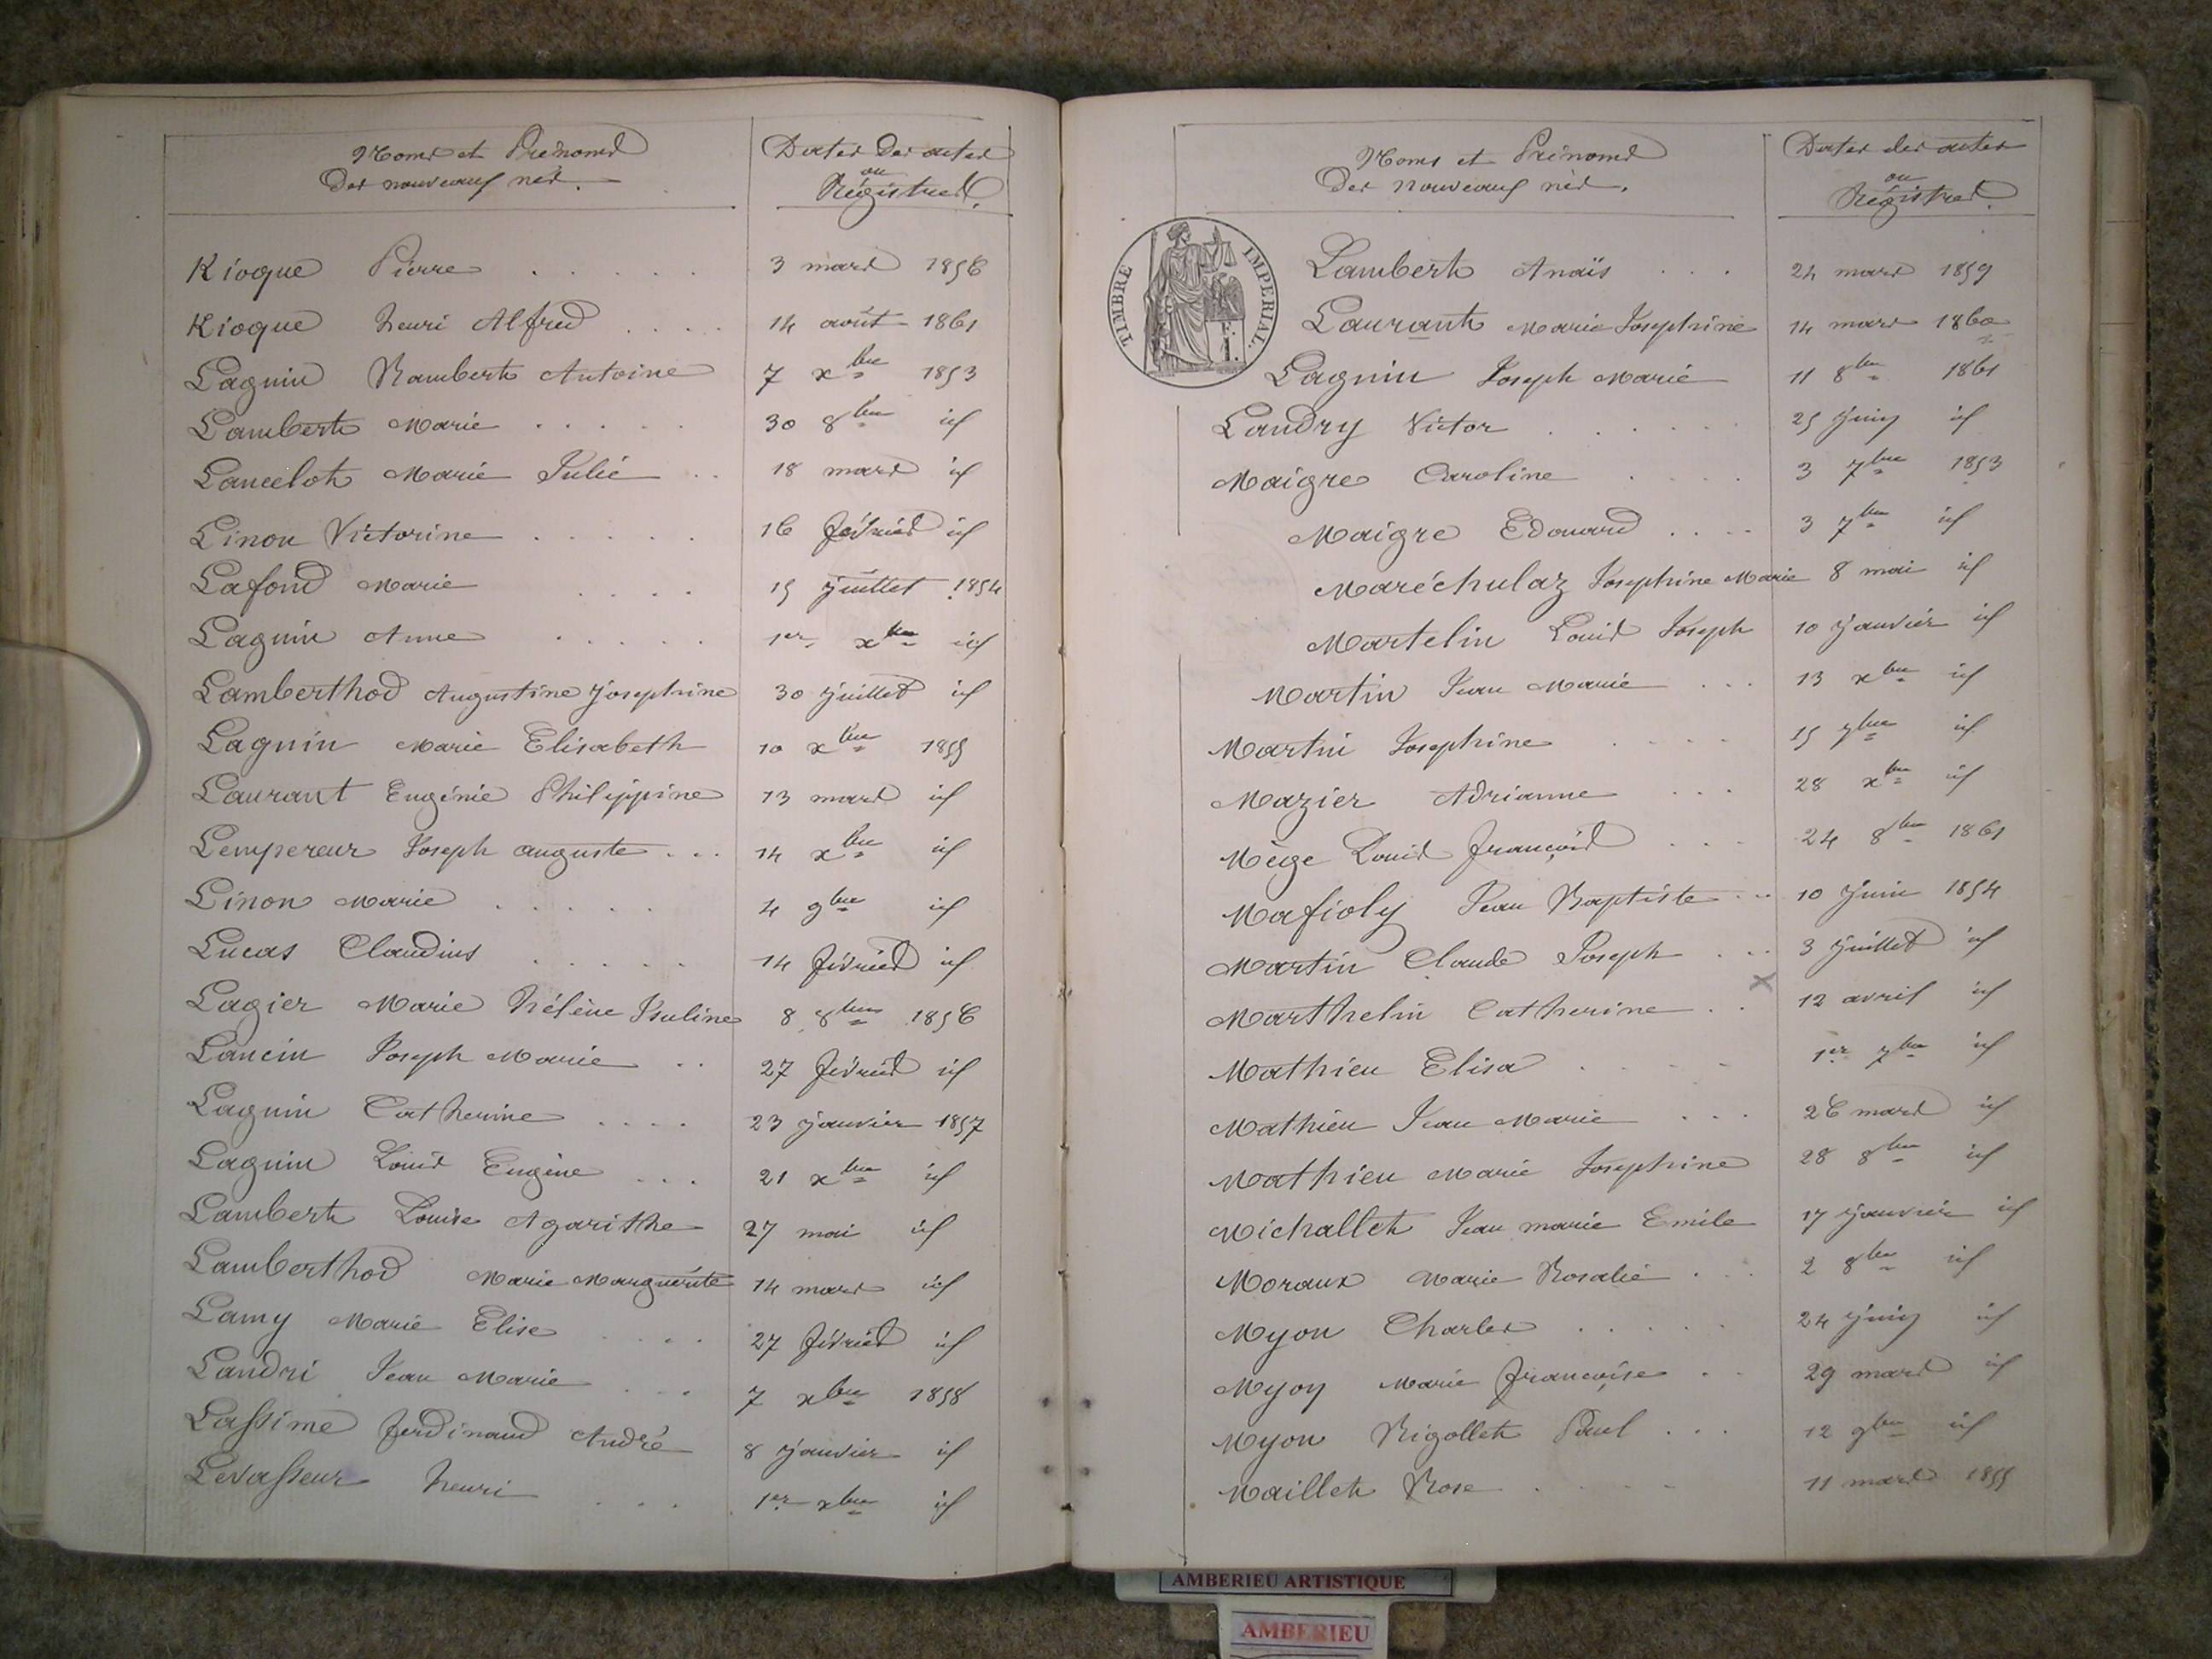 Noms et Prénoms
des nouveaux nés.
Dates des actes
ou
Régistres.
Kioque Pierre . . . . . 3 mars 1856
Kioque henri Alfred . . . . 14 août 1861
Lagnin Rambert Antoine 7 xbre 1853
Lambert Marie . . . . . 30 8bre id
Lancelot Marie Julie . . 18 mars id
Linon Victorine . . . . . 16 février id
Lafond Marie . . . . 15 juillet 1854
Lagnin Anne . . . . . 1er xbre id
Lamberthod Augustine Josephine 30 juillet id
Lagnin Marie Elisabeth 10 xbre 1855
Laurant Eugénie Philippine 13 mars id
Lempereur Joseph auguste . . . 14 xbre id
Linon Marie . . . . . 4 9bre id
Lucas Claudius . . . . . 14 février id
Lagier Marie hélène Isuline 8 8bre 1856
Lancin Joseph Marie . . 27 février id
Lagnin Catherine . . . . 23 janvier 1857
Lagnin Louis Eugène . . . 21 xbre id
Lambert Louise Agarithe 27 mai id
Lamberthod Marie Marguérite 14 mars id
Lamy Marie Elise . . . . 27 février id
Landri Jean Marie . . . 7 xbre 1858
Lassime ferdinand André 8 janvier id
Levasseur henri . . . 1er xbre id
Noms et Prénoms
des nouveaux nés.
Dates des actes
ou
Régistres.
TIMBRE IMPERIAL.
Lambert Anaïs . . . 24 mars 1859
Laurant Marie Josephine 14 mars 1860
Lagnin Joseph Marie 11 8bre 1861
Landry Victor . . . . . . 25 juin id
Maigre Caroline . . . . 3 7bre 1853
Maigre Edouard . . . . 3 7bre id
Maréchulaz Josephine Marie 8 mai id
Martelin Louis Joseph 10 janvier id
Martin Jean Marie . . . 13 xbre id
Martin Josephine . . . . 15 7bre id
Mazier Adrianne . . . 28 xbre id
Mège Louis françois . . . 24 8bre 1861
Mafioly Jean Baptiste . . 10 juin 1854
Martin Claude Joseph . . . 3 juillet id
Marthelin Catherine . . 12 avril id
Mathieu Elisa . . . . 1er 7bre id
Mathieu Jean Marie . . . 26 mars id
Mathieu Marie Josephine 28 8bre id
Michallet Jean marie Emile 17 janvier id
Moraux Marie Rosalie . . . 2 8bre id
Myon Charles . . . . . 24 juin id
Myon Marie françoise . . 29 mars id
Myon Rigollet Paul . . . 12 9bre id
Maillet Rose . . . . . 11 mars 1855
AMBERIEU ARTISTIQUE
AMBERIEU